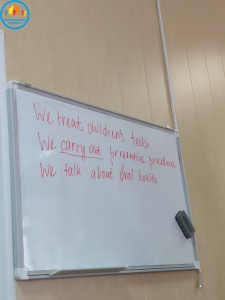 We treat children's teeth.
We carry out preventive procedures
We talk about oral health